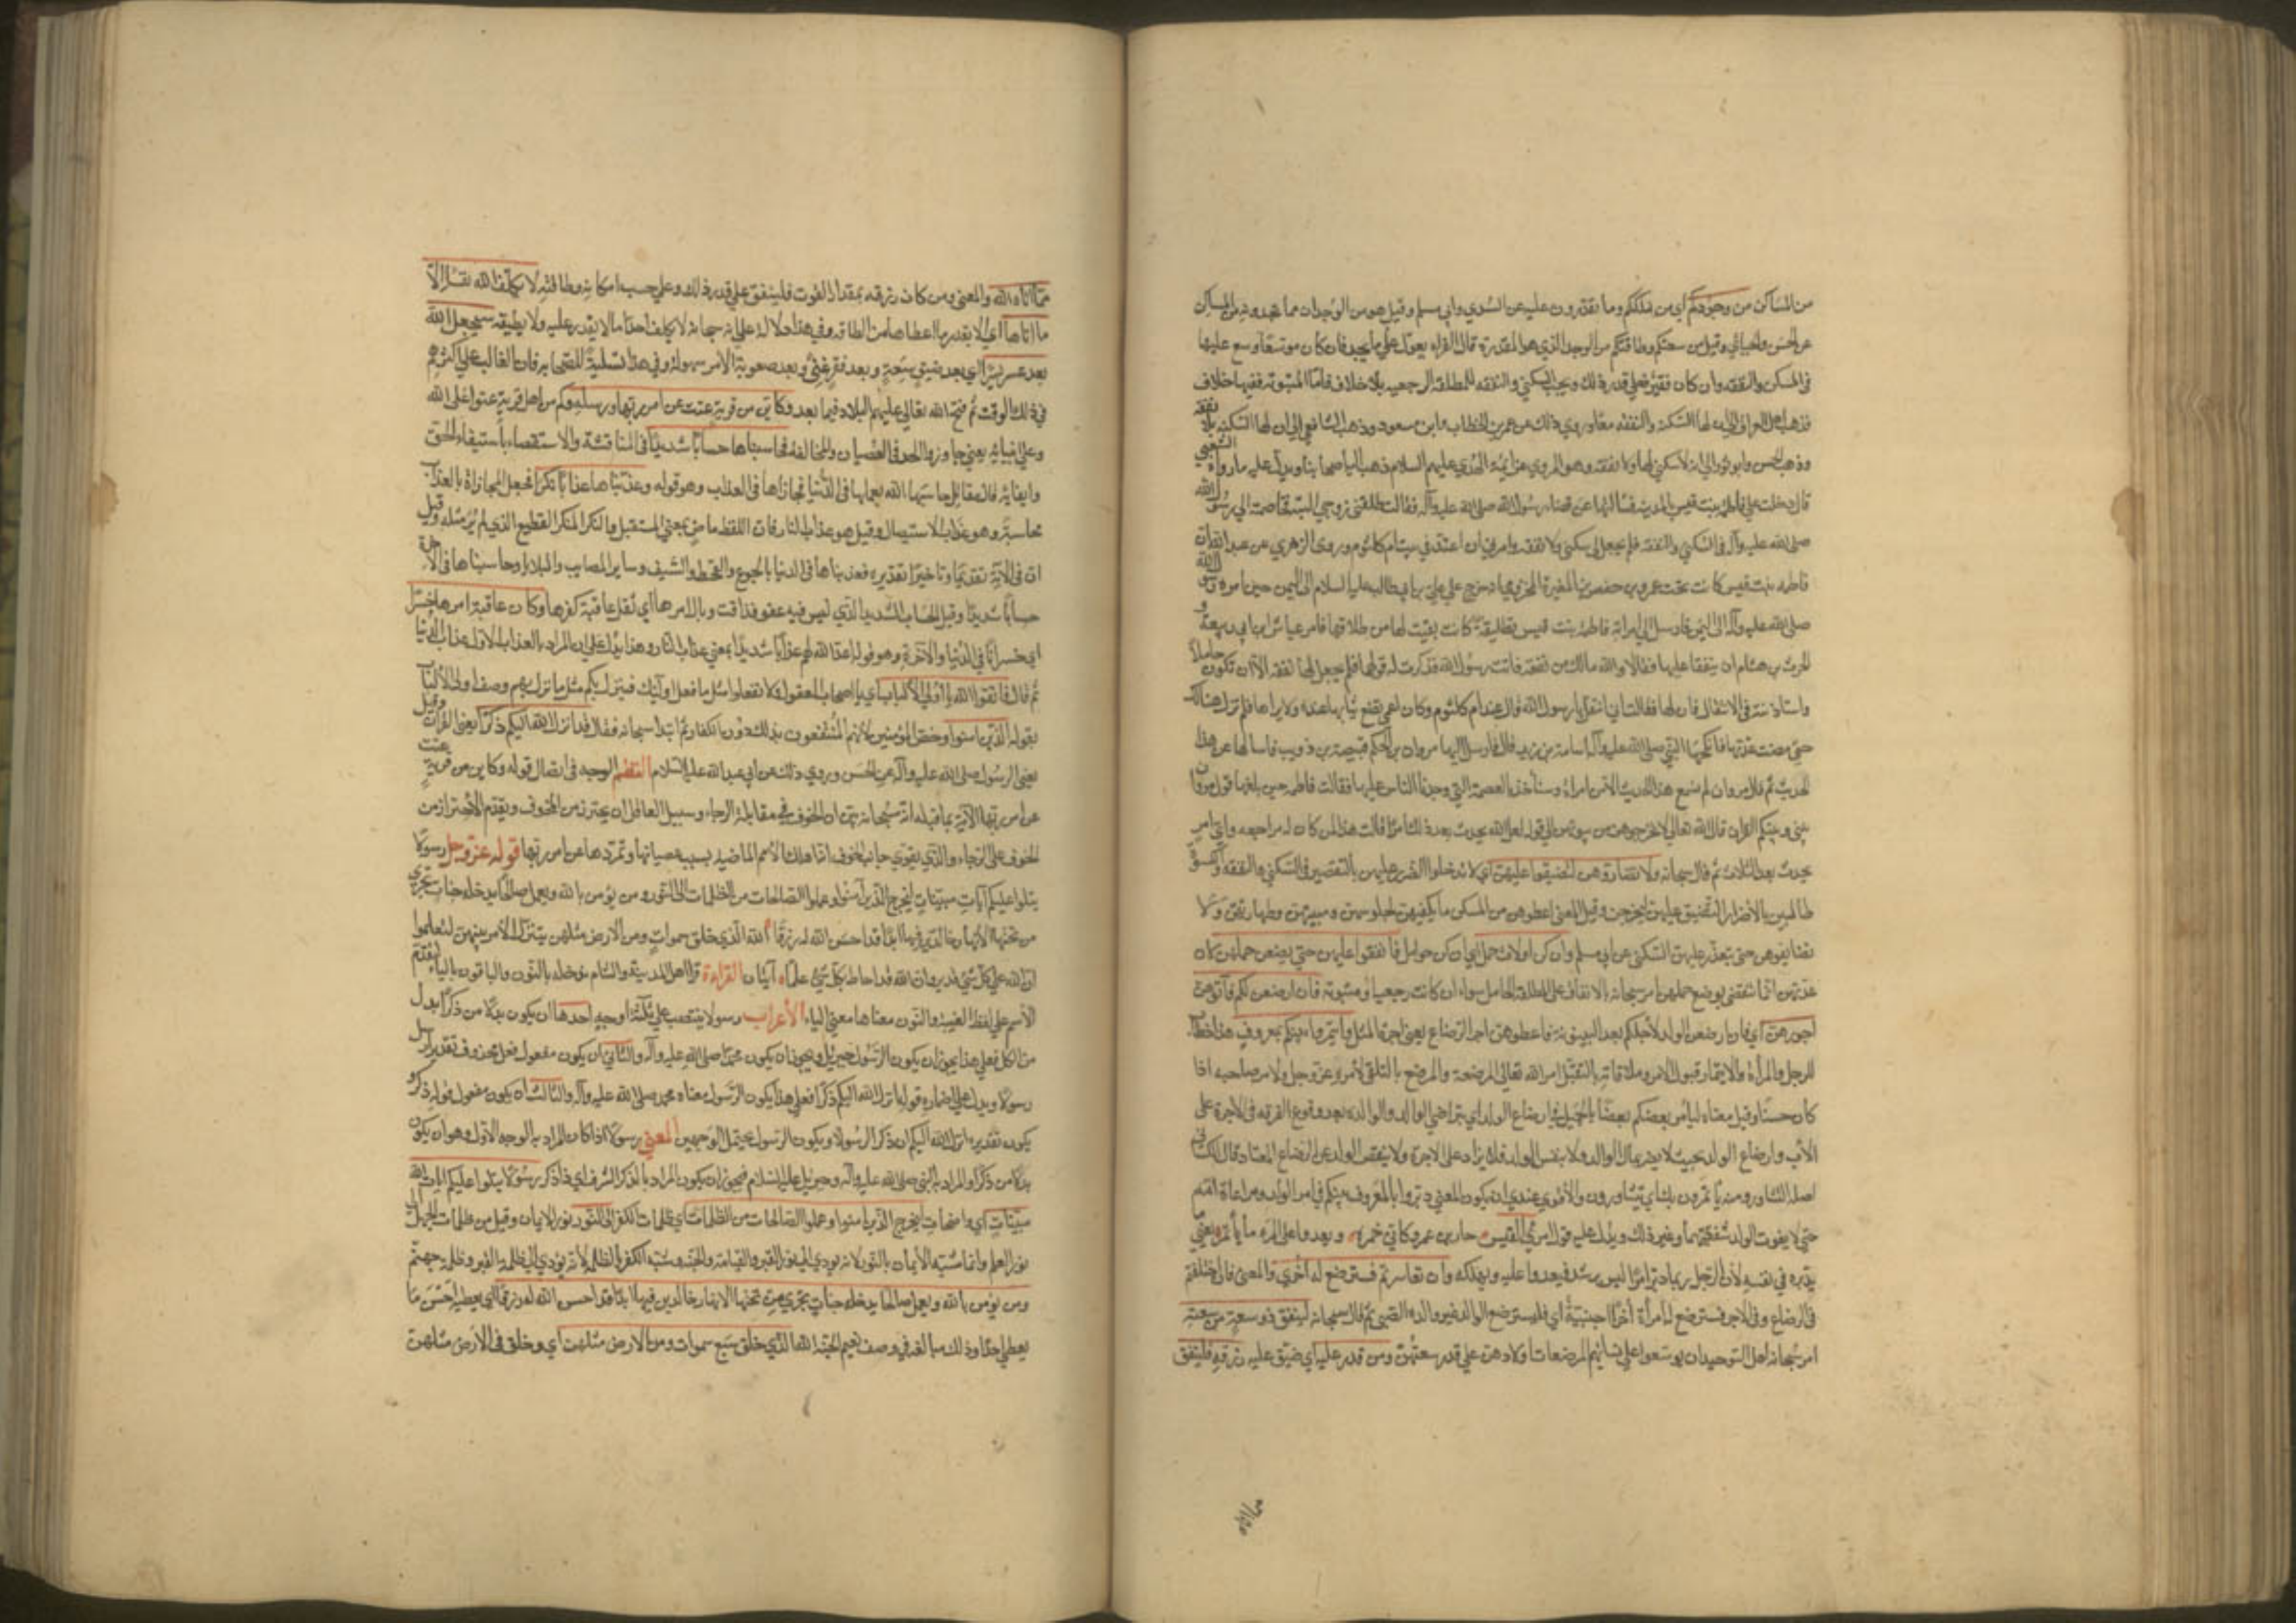 من المساكن من وجدكم أي من ملككم وما تقدرون عليه عن السدي وابي مسلم وقيل هو من الوجدان مما تجدونه من المساكن
عن الحسن والجبائي وقيل من سعتكم وطاقتكم من الوجد الذي هو المقدرة قال الفراء يعول على ما يجد فان كان موسعا وسع عليها
في المسكن والنفقة وان كان فقيرا فعلى قدر ذلك ويجب السكنى والنفقة للمطلقة الرجعية بلا خلاف فاما المبتوتة ففيها خلاف
فذهب اهل العراق الى ان لها السكنى والنفقة معا وروي ذلك عن عمر بن الخطاب وابن مسعود وذهب الشافعي الى ان لها السكنى بلا نفقة
وذهب الحسن وابو ثور الى انه لا سكنى لها ولا نفقة وهو المروي عن ائمة الهدى عليهم السلام وذهب اليه اصحابنا ويدل عليه ما رواه الشعبي
قال دخلت على فاطمة بنت قيس بالمدينة فسالتها عن قضاء رسول الله صلى الله عليه وآله فقالت طلقني زوجي البتة فخاصمته الى رسول الله
صلى الله عليه وآله في السكنى والنفقة فلم يجعل لي سكنى ولا نفقة وامرني ان اعتد في بيت ام كلثوم وروى الزهري عن عبيد الله ان
فاطمة بنت قيس كانت تحت عمرو بن حفص بن المغيرة المخزومي وانه خرج مع علي بن ابي طالب عليه السلام الى اليمن حين امره رسول الله
صلى الله عليه وآله الى اليمن فارسل الى امراته فاطمة بنت قيس بتطليقة كانت بقيت لها من طلاقها فامر عياش بن ابي ربيعة و
الحرث بن هشام ان ينفقا عليها فقالا والله مالك من نفقة فاتت رسول الله فذكرت له قولهما فلم يجعل لها نفقة الا ان تكون حاملا
واستاذنته في الانتقال فاذن لها فقالت اين انتقل يا رسول الله قال عند ام كلثوم وكان اعمى تضع ثيابها عنده ولا يراها فلم تزل هنالك
حتى مضت عدتها فانكحها النبي صلى الله عليه وآله اسامة بن زيد قال فارسل اليها مروان بن الحكم قبيصة بن ذويب فسالها عن هذا
الحديث ثم قال مروان لم نسمع هذا الحديث الا من امراة وسناخذ بالعصمة التي وجدنا الناس عليها فقالت فاطمة حين بلغها قول مروان
بيني وبينكم القران قال الله تعالى لا تخرجوهن من بيوتهن الى قوله لعل الله يحدث بعد ذلك امرا قالت هذا لمن كان له مراجعة واي امر
يحدث بعد الثلاث ثم قال سبحانه ولا تضاروهن لتضيقوا عليهن اي لا تدخلوا الضرر عليهن بالتقصير في السكنى والنفقة والكسوة
طالبين بالاضرار التضييق عليهن ليخرجن وقيل المعنى اعطوهن من المسكن ما يكفيهن لجلوسهن ومبيتهن وطهارتهن ولا
تضايقوهن حتى يتعذر عليهن السكنى عن ابي مسلم وان كن اولات حمل اي ان كن حوامل فانفقوا عليهن حتى يضعن حملهن لان
عدتهن انما تنقضي بوضع حملهن امر سبحانه بالانفاق على المطلقة الحامل سواء ان كانت رجعية او مبتوتة فان ارضعن لكم فآتوهن
اجورهن اي فان ارضعن الولد لاجلكم بعد البينونة فاعطوهن اجر الرضاع يعني اجرة المثل وأتمروا بينكم بمعروف هذا خطاب
للرجل والمرأة والايتمار قبول الامر وملاقاته بالتقبل امر الله تعالى المرضعة والمرضع بالتلقي لامره عز وجل ولامر صاحبه اذا
كان حسنا وقيل معناه ليامر بعضكم بعضا بالجميل في ارضاع الولد اي بتراضي الوالد والوالدة بعد وقوع الفرقة في الاجرة على
الاب وارضاع الولد بحيث لا يضر بمال الوالد ولا بنفس الولد فلا يزاد على الاجرة ولا ينقص الولد عن الرضاع المعتاد قال الكسائي
اصله التشاور ومنه يأتمرون بك اي يتشاورون والاقوى عندي ان يكون المعنى دبروا بالمعروف بينكم في امر الولد ومراعاة امه
حتى لا يفوت الولد شفقتهما وغير ذلك ويدل عليه قول امرئ القيس احار بن عمرو كاني خمر ويعدو على المرء ما يأتمر يعني
يدبره في نفسه لان الرجل ربما دبر امرا ليس برشد فيعدوا عليه ويهلكه وان تعاسرتم فسترضع له اخرى والمعنى فان اختلفتم
في الرضاع وفي الاجر فسترضع له امرأة اخرى اجنبية اي فليسترضع الوالد غير والدة الصبي ثم قال سبحانه لينفق ذو سعة من سعته
امر سبحانه اهل التوسعة ان يوسعوا على نسائهم المرضعات اولادهن على قدر سعتهم ومن قدر عليه اي ضيق عليه رزقه فلينفق
مما آتاه الله والمعنى ومن كان رزقه بمقدار القوت فلينفق على قدر ذلك وعلى حسب امكانه وطاقته لا يكلف الله نفسا الا
ما اتاها اي الا بقدر ما اعطاها من الطاقة وفي هذا دلالة على انه سبحانه لا يكلف احدا ما لا يقدر عليه ولا يطيقه سيجعل الله
بعد عسر يسرا اي بعد ضيق سعة وبعد فقر غنى وبعد صعوبة الامر سهولة وفي هذا تسلية للصحابة فان الغالب على اكثرهم
في ذلك الوقت ثم فتح الله تعالى عليهم البلاد فيما بعد وكاين من قرية عتت عن امر ربها ورسله اي وكم من اهل قرية عتوا على الله
وعلى انبيائه يعني جاوزوا الحد في العصيان والمخالفة فحاسبناها حسابا شديدا في المناقشة والاستقصاء باستيفاء الحق
وايفائه قال مقاتل حاسبها الله بعملها في الدنيا فجازاها في العذاب وهو قوله وعذبناها عذابا نكرا فجعل المجازاة بالعذاب
محاسبة وهو عذاب الاستيصال وقيل هو عذاب النار فان اللفظ ماض بمعنى المستقبل والنكر المنكر الفظيع الذي لم ير مثله وقيل
ان في الآية تقديما وتاخيرا تقديره فعذبناها في الدنيا بالجوع والقحط والسيف وساير المصايب والبلايا وحاسبناها في الآخرة
حسابا شديدا وقيل الحساب الشديد الذي ليس فيه عفو فذاقت وبال امرها اي ثقل عاقبة كفرها وكان عاقبة امرها خسرا
اي خسرانا في الدنيا والآخرة وهو قوله اعد الله لهم عذابا شديدا يعني عذاب النار وهذا يدل على ان المراد بالعذاب الاول عذاب الدنيا
ثم قال فاتقوا الله يا اولي الالباب اي يا اصحاب العقول ولا تفعلوا مثل ما فعل اولئك فينزل بكم مثل ما نزل بهم وصف اولي الالباب
بقوله الذين امنوا وخص المؤمنين لانهم المنتفعون بذلك دون الكفار ثم ابتدا سبحانه فقال قد انزل الله اليكم ذكرا يعني القرآن وقيل
يعني الرسول صلى الله عليه وآله عن الحسن وروي ذلك عن ابي عبد الله عليه السلام النظم الوجه في اتصال قوله وكاين من قرية عتت
عن امر ربها الآية بما قبله انه سبحانه بين ان الخوف في مقابلة الرجاء وسبيل العاقل ان يحترز من المخوف ويقدم الاحتراز من
الخوف على الرجاء والذي يقوي جانب الخوف انا هلاك الامم الماضية بسبب عصيانها وتمردها عن امر ربها قوله عز وجل رسولا
يتلوا عليكم آيات مبينات ليخرج الذين آمنوا وعملوا الصالحات من الظلمات الى النور ومن يؤمن بالله ويعمل صالحا يدخله جنات تجري
من تحتها الانهار خالدين فيها ابدا قد احسن الله له رزقا الله الذي خلق سموات ومن الارض مثلهن يتنزل الامر بينهن لتعلموا
ان الله على كل شيء قدير وان الله قد احاط بكل شيء علما آيتان القراءة قرا اهل المدينة والشام ندخله بالنون والباقون بالياء لتقدم
الاسم على لفظ الغيبة والنون معناها معنى الياء الاعراب رسولا ينتصب على ثلثة اوجه احدها ان يكون بدلا من ذكرا بدل
من الكل فعلى هذا يجوز ان يكون الرسول جبرئيل ويجوز ان يكون محمدا صلى الله عليه وآله والثاني ان يكون مفعول فعل محذوف تقديره ارسل
رسولا ويدل على اضماره قوله انزل الله اليكم ذكرا فعلى هذا يكون الرسول معناه محمد صلى الله عليه وآله والثالث ان يكون مفعول قوله ذكر و
يكون تقديره انزل الله اليكم ان ذكر الرسولا ويكون الرسول يحتمل الوجهين المعنى رسولا اذا كان المراد به الوجه الاول وهو ان يكون
بدلا من ذكرا والمراد به النبي صلى الله عليه وآله وجبريل عليه السلام فيجوز ان يكون المراد بالذكر الشرف اي ذا ذكر رسولا يتلوا عليكم آيات الله
مبينات اي واضحات ليخرج الذين امنوا وعملوا الصالحات من الظلمات اي ظلمات الكفر الى النور نور الايمان وقيل من ظلمات الجهل الى
نور العلم وانما شبه الايمان بالنور لانه يودي الى نور القبر والقيامة والجنة وشبه الكفر بالظلمة لانه يؤدي الى ظلمة القبر وظلمة جهنم
ومن يؤمن بالله ويعمل صالحا يدخله جنات تجري من تحتها الانهار خالدين فيها ابدا قد احسن الله له رزقا اي يعطيه احسن ما
يعطي احدا وذلك مبالغة في وصف نعيم الجنة الله الذي خلق سبع سموات ومن الارض مثلهن اي وخلق في الارض مثلهن